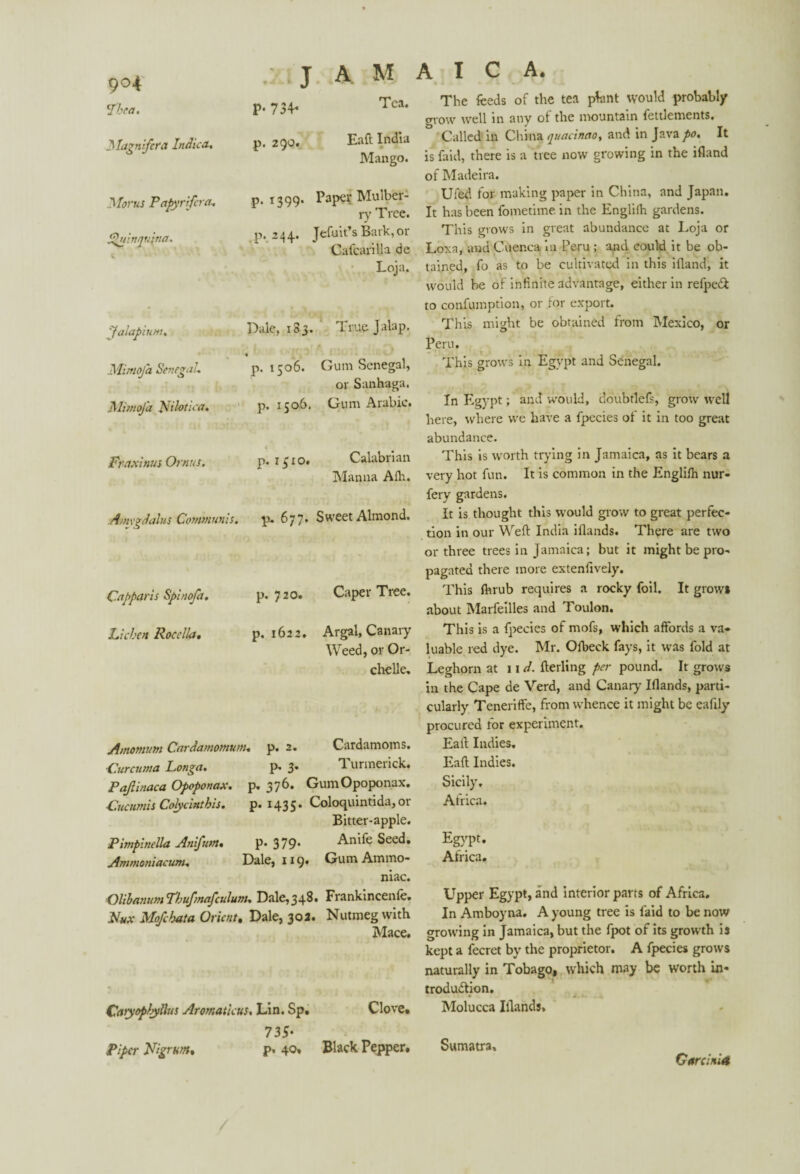 904
JAMAICA.
Thea. p. 734. Tea.
Magnifera Indica. p. 290. Eaſt India
Mango.
Morus Papyrifera. p. 1399. Paper Mulber-
ry Tree.
Quinquina. p. 244. Jeſuit's Bark, or
Caſcarilla de
Loja.
Jalapium. Dale, 183. True Jalap.
Mimoſa Senegal. p. 1506. Gum Senegal,
or Sanhaga.
Mimoſa Nilotica. p. 1506. Gum Arabic.
Fraxinus Ornus. p. 1510. Calabrian
Manna Aſh.
Amygdalus Communis. p. 677. Sweet Almond.
Capparis Spinoſa. p. 720. Caper Tree.
Lichen Rocella. p. 1622. Argal, Canary
Weed, or Or-
chelle.
Amomum Cardamomum. p. 2. Cardamoms.
Curcuma Longa. p. 3. Turmerick.
Paſtinaca Opoponax. p. 376. Gum Opoponax.
Cucumis Colycinthis. p. 1435. Coloquintida, or
Bitter-apple.
Pimpinella Aniſum. p. 379. Aniſe Seed.
Ammoniacum. Dale, 119. Gum Ammo-
niac.
Olibanum Thuſmaſculum. Dale, 348. Frankincenſe.
Nux Moſchata Orient. Dale, 302. Nutmeg with
Mace.
Caryophyllus Aromaticus. Lin. Sp. Clove.
735.
Piper Nigrum. p. 40. Black Pepper.
The ſeeds of the tea plant would probably
grow well in any of the mountain ſettlements.
Called in China quacinao, and in Java po. It
is ſaid, there is a tree now growing in the iſland
of Madeira.
Uſed for making paper in China, and Japan.
It has been ſometime in the Engliſh gardens.
This grows in great abundance at Loja or
Loxa, and Cuenca in Peru; and could it be ob-
tained, ſo as to be cultivated in this iſland, it
would be of infinite advantage, either in reſpect
to conſumption, or for export.
This might be obtained from Mexico, or
Peru.
This grows in Egypt and Senegal.
In Egypt; and would, doubtleſs, grow well
here, where we have a ſpecies of it in too great
abundance.
This is worth trying in Jamaica, as it bears a
very hot ſun. It is common in the Engliſh nur-
ſery gardens.
It is thought this would grow to great perfec-
tion in our Weſt India iſlands. There are two
or three trees in Jamaica; but it might be pro-
pagated there more extenſively.
This ſhrub requires a rocky ſoil. It grows
about Marſeilles and Toulon.
This is a ſpecies of moſs, which affords a va-
luable red dye. Mr. Oſbeck ſays, it was ſold at
Leghorn at 11 d. ſterling per pound. It grows
in the Cape de Verd, and Canary Iſlands, parti-
cularly Teneriffe, from whence it might be eaſily
procured for experiment.
Eaſt Indies.
Eaſt Indies.
Sicily.
Africa.
Egypt.
Africa.
Upper Egypt, and interior parts of Africa.
In Amboyna. A young tree is ſaid to be now
growing in Jamaica, but the ſpot of its growth is
kept a ſecret by the proprietor. A ſpecies grows
naturally in Tobago, which may be worth in-
troduction.
Molucca Iſlands.
Sumatra.
Garcinia